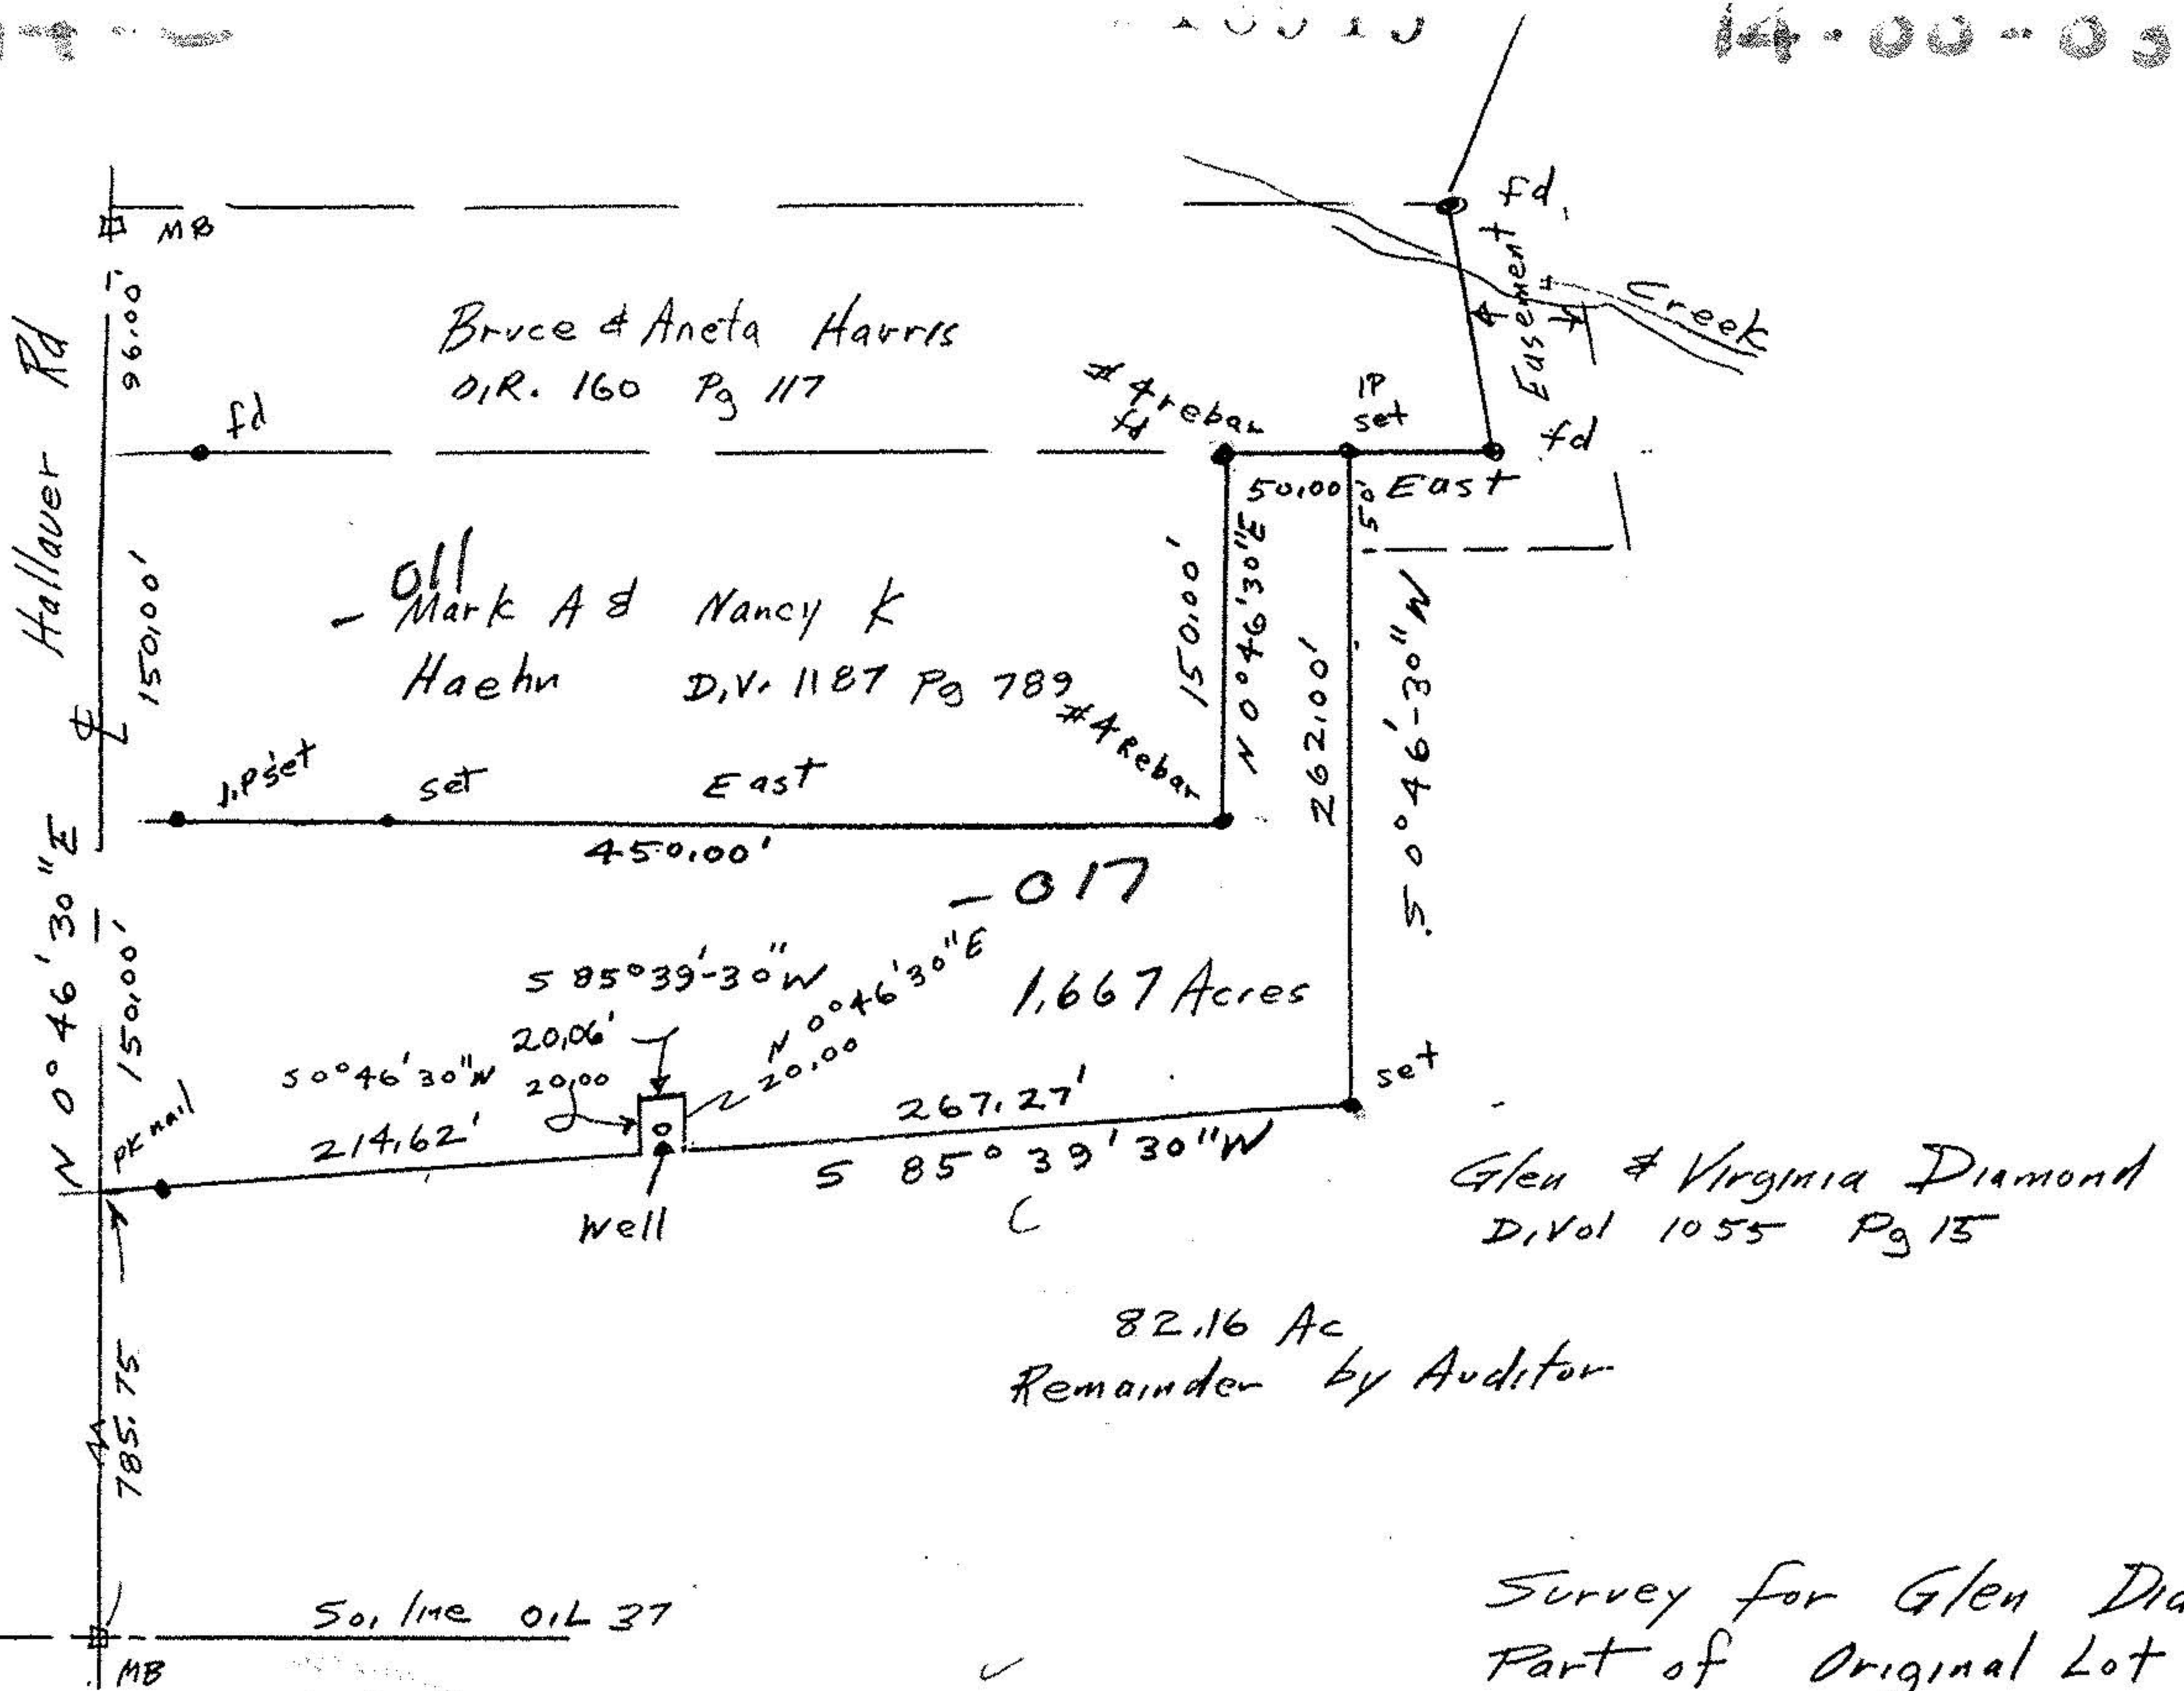 14-00-03
fd.
MB
Creek
Easement
96.00'
Bruce & Aneta Harris
O.R. 160 Pg 117
#4 rebar
fd
IP
set
fd
fd
Hallauer Rd
50.00
East
50
150.00'
-011
Mark A & Nancy K
Haehn D.V. 1187 Pg 789
150.00'
N 0°46'30"E
262.00'
S 0°46'-30"W
#4 Rebar
I.P set
set
East
450.00'
-017
N 0°46'30"E
150.00'
S 85°39'-30"W
20.06'
N 0°46'30"E
20.00
1.667 Acres
S 0°46'30"W
20.00
PK nail
214.62'
267.27'
S 85°39'30"W
set
Well
Glen & Virginia Diamond
D.Vol 1055 Pg 15
82.16 Ac
Remainder by Auditor
785.75
So. line O.L 37
MB
Survey for Glen Dia
Part of Original Lot